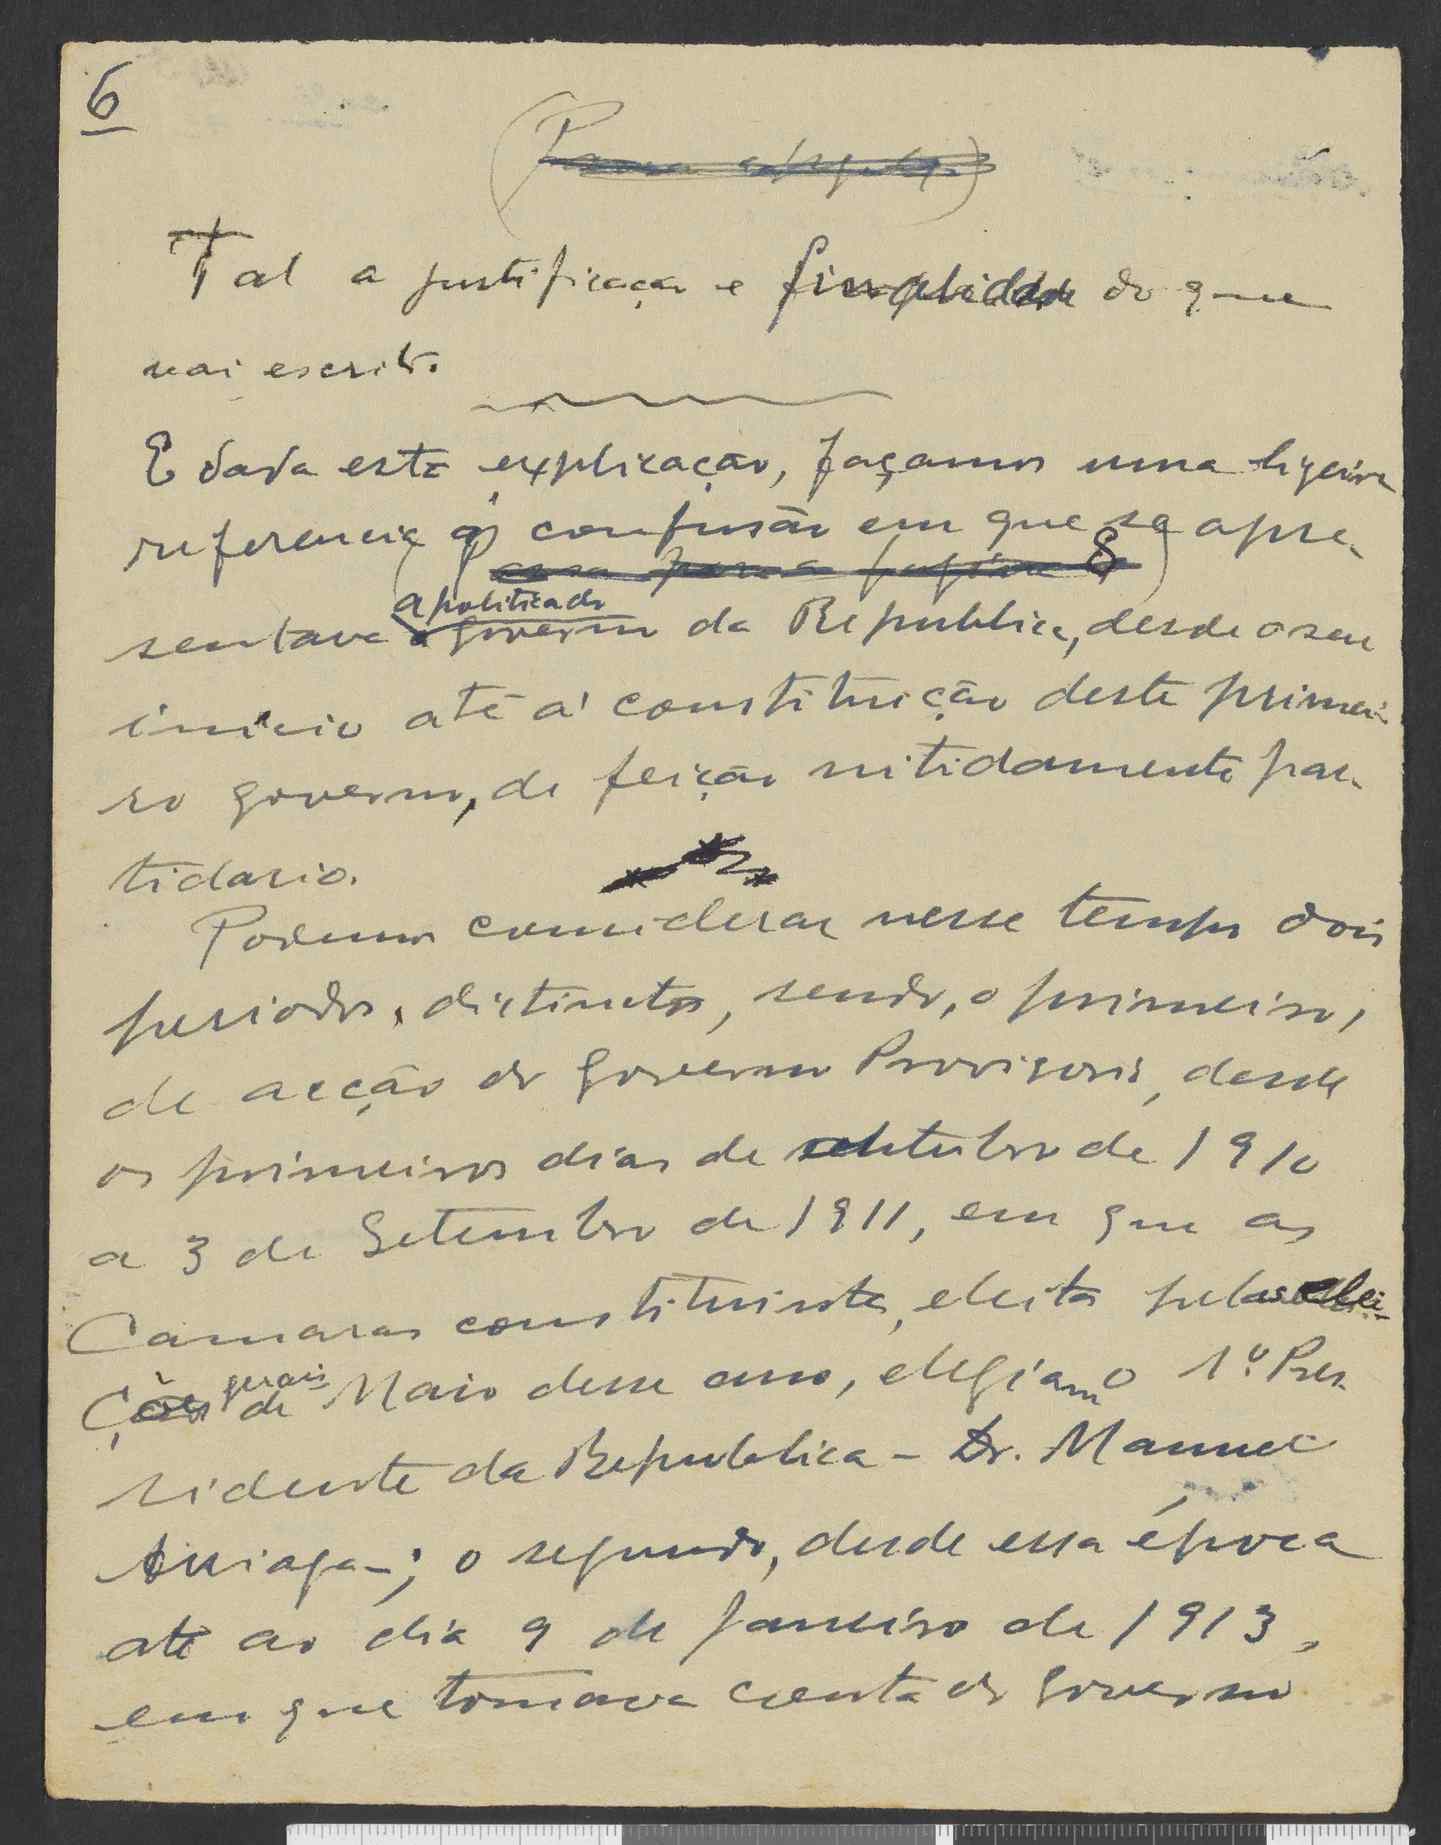 6
Tal a justificação e finalidade do que
vai escrito.
E dada esta explicação, façamos uma ligeira
referencia á confusão em que se apre-
sentava a politica do governo da Republica, desde o seu
inicio até á constituição deste primei-
ro governo, de feição nitidamente par-
tidario.
Podemos considerar nesse tempo dois
periodos, distinctos, sendo, o primeiro,
de acção do Governo Provisorio, desde
os primeiros dias de outubro de 1910
a 3 de Setembro de 1911, em que as
Camaras constituintes, eleitas pelas elei-
ções gerais de Maio desse ano, elegiam o 1º Pre-
sidente da Republica - Dr. Manuel
Arriaga -; o segundo, desde essa época
até ao dia 9 de Janeiro de 1913,
em que tomava conta do governo